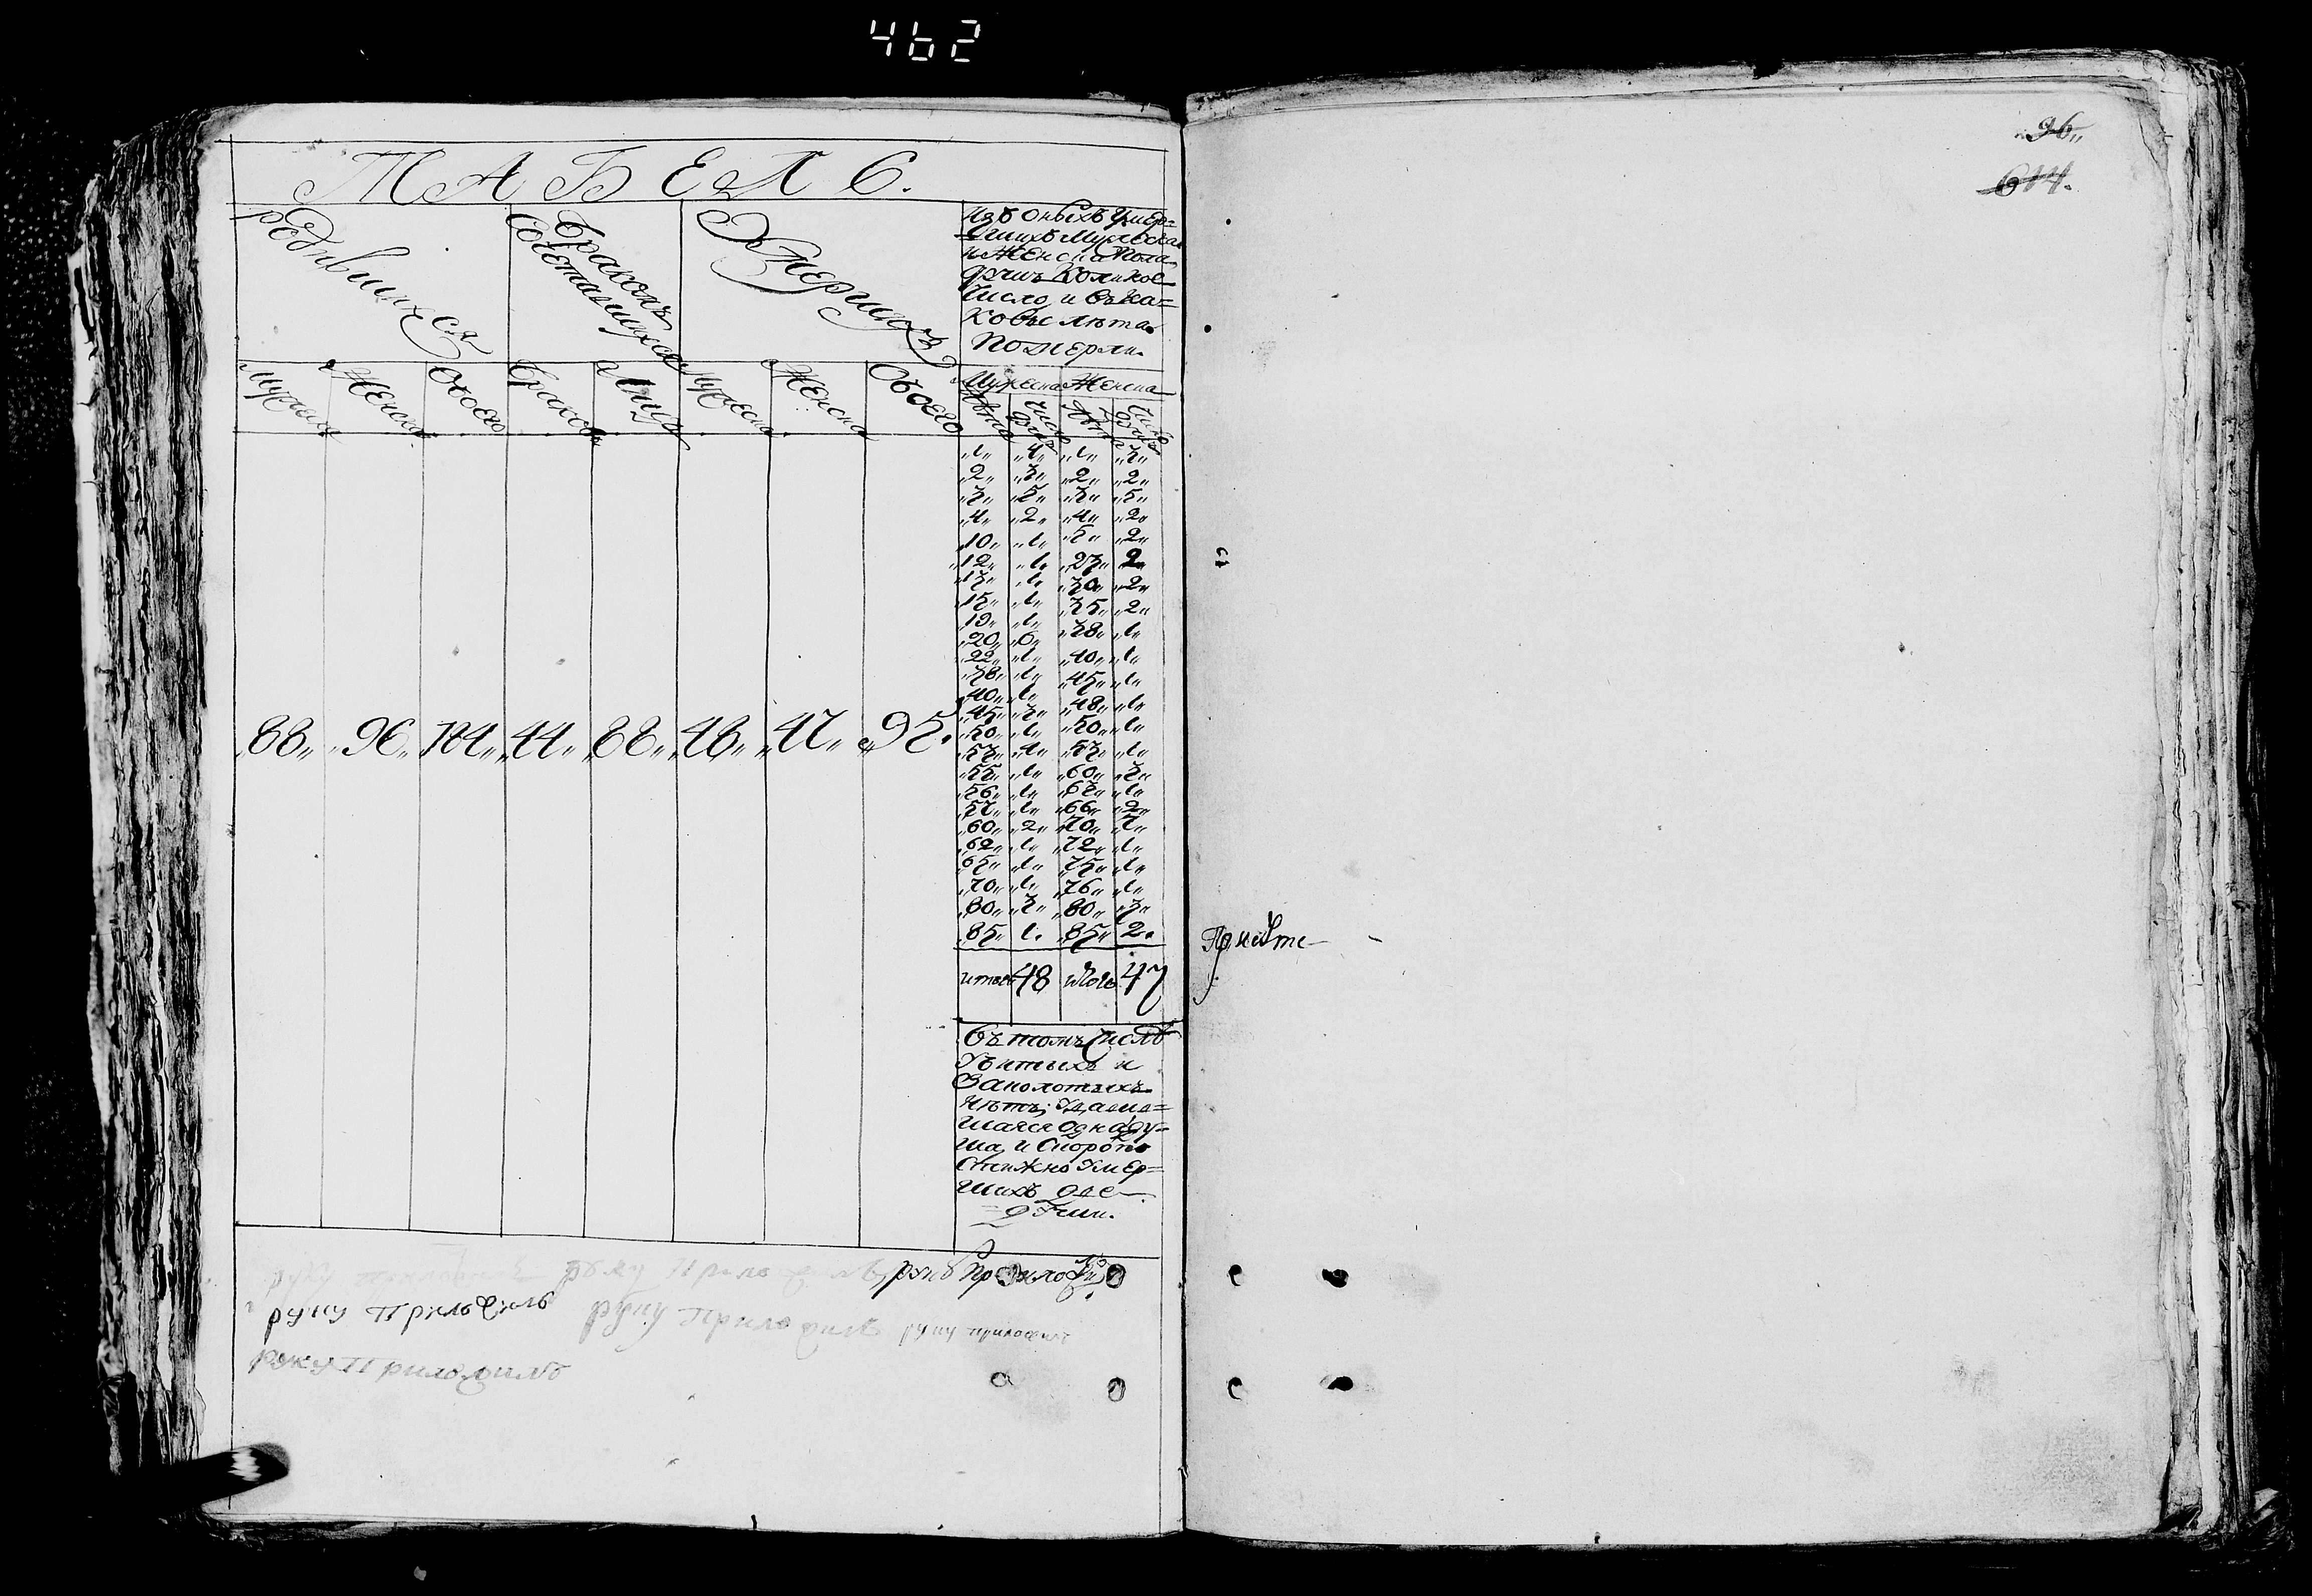 462
ТАБЕЛЬ.
родившихся
Бракомъ
Сочетавшихся
Умершихъ
Изъ оныхъ Умер=
шихъ Мужеска
и Женска Пола
душъ Коликое
Число, и Въ ка=
ковые лѣта
Померли.
Мужеска Женска Обоего Браковъ Лицъ Мужеска Женска Обоего
Мужеска Женска
Лѣта Число душъ Лѣта Число душъ
„1„ „4„ „1„ „3„
„2„ „3„ „2„ „2„
„3„ „5„ „3„ „5„
„4„ „2„ „4„ „2„
„10„ „1„ „5„ „2„
„12„ „1„ „23„ 2„
„13„ „1„ „30„ „2„
„15„ „1„ „35„ „2„
„19„ „1„ „38„ „1„
„20„ „6„
„22„ „1„ „40„ „1„
„38„ „1„ „45„ „1„
„40„ „1„ „48„ „1„
„45„ „3„ „50„ „1„
„50„ „1„
„53„ „4„ „53„ „1„
„55„ „1„ „60„ „3„
„56„ „1„ „1„
„57„ „1„ „66„ „2„
„60„ „2„ „70„ „7„
„62„ „1„ „72„ „1„
„65„ „1„ „75„ „1„
„70„ „1„ „76„ „1„
„80„ „3„ „80„ „3„
„85„ 1. „85„ 2.
„88„ „96„ 184„ „44„ „88„ „48„ „47„ „95.
итого 48 итого 47
Въ томъ Числѣ
Убитыхъ и
Заколотыхъ
Нѣтъ; Удавив=
шаяся одна ду=
ша, и Скоропо
стижно Умер=
шихъ две
= души.
руку Приложилъ руку Приложилъ
руку Приложилъ руку Приложилъ руку приложилъ
руку Приложилъ
„96„
614.